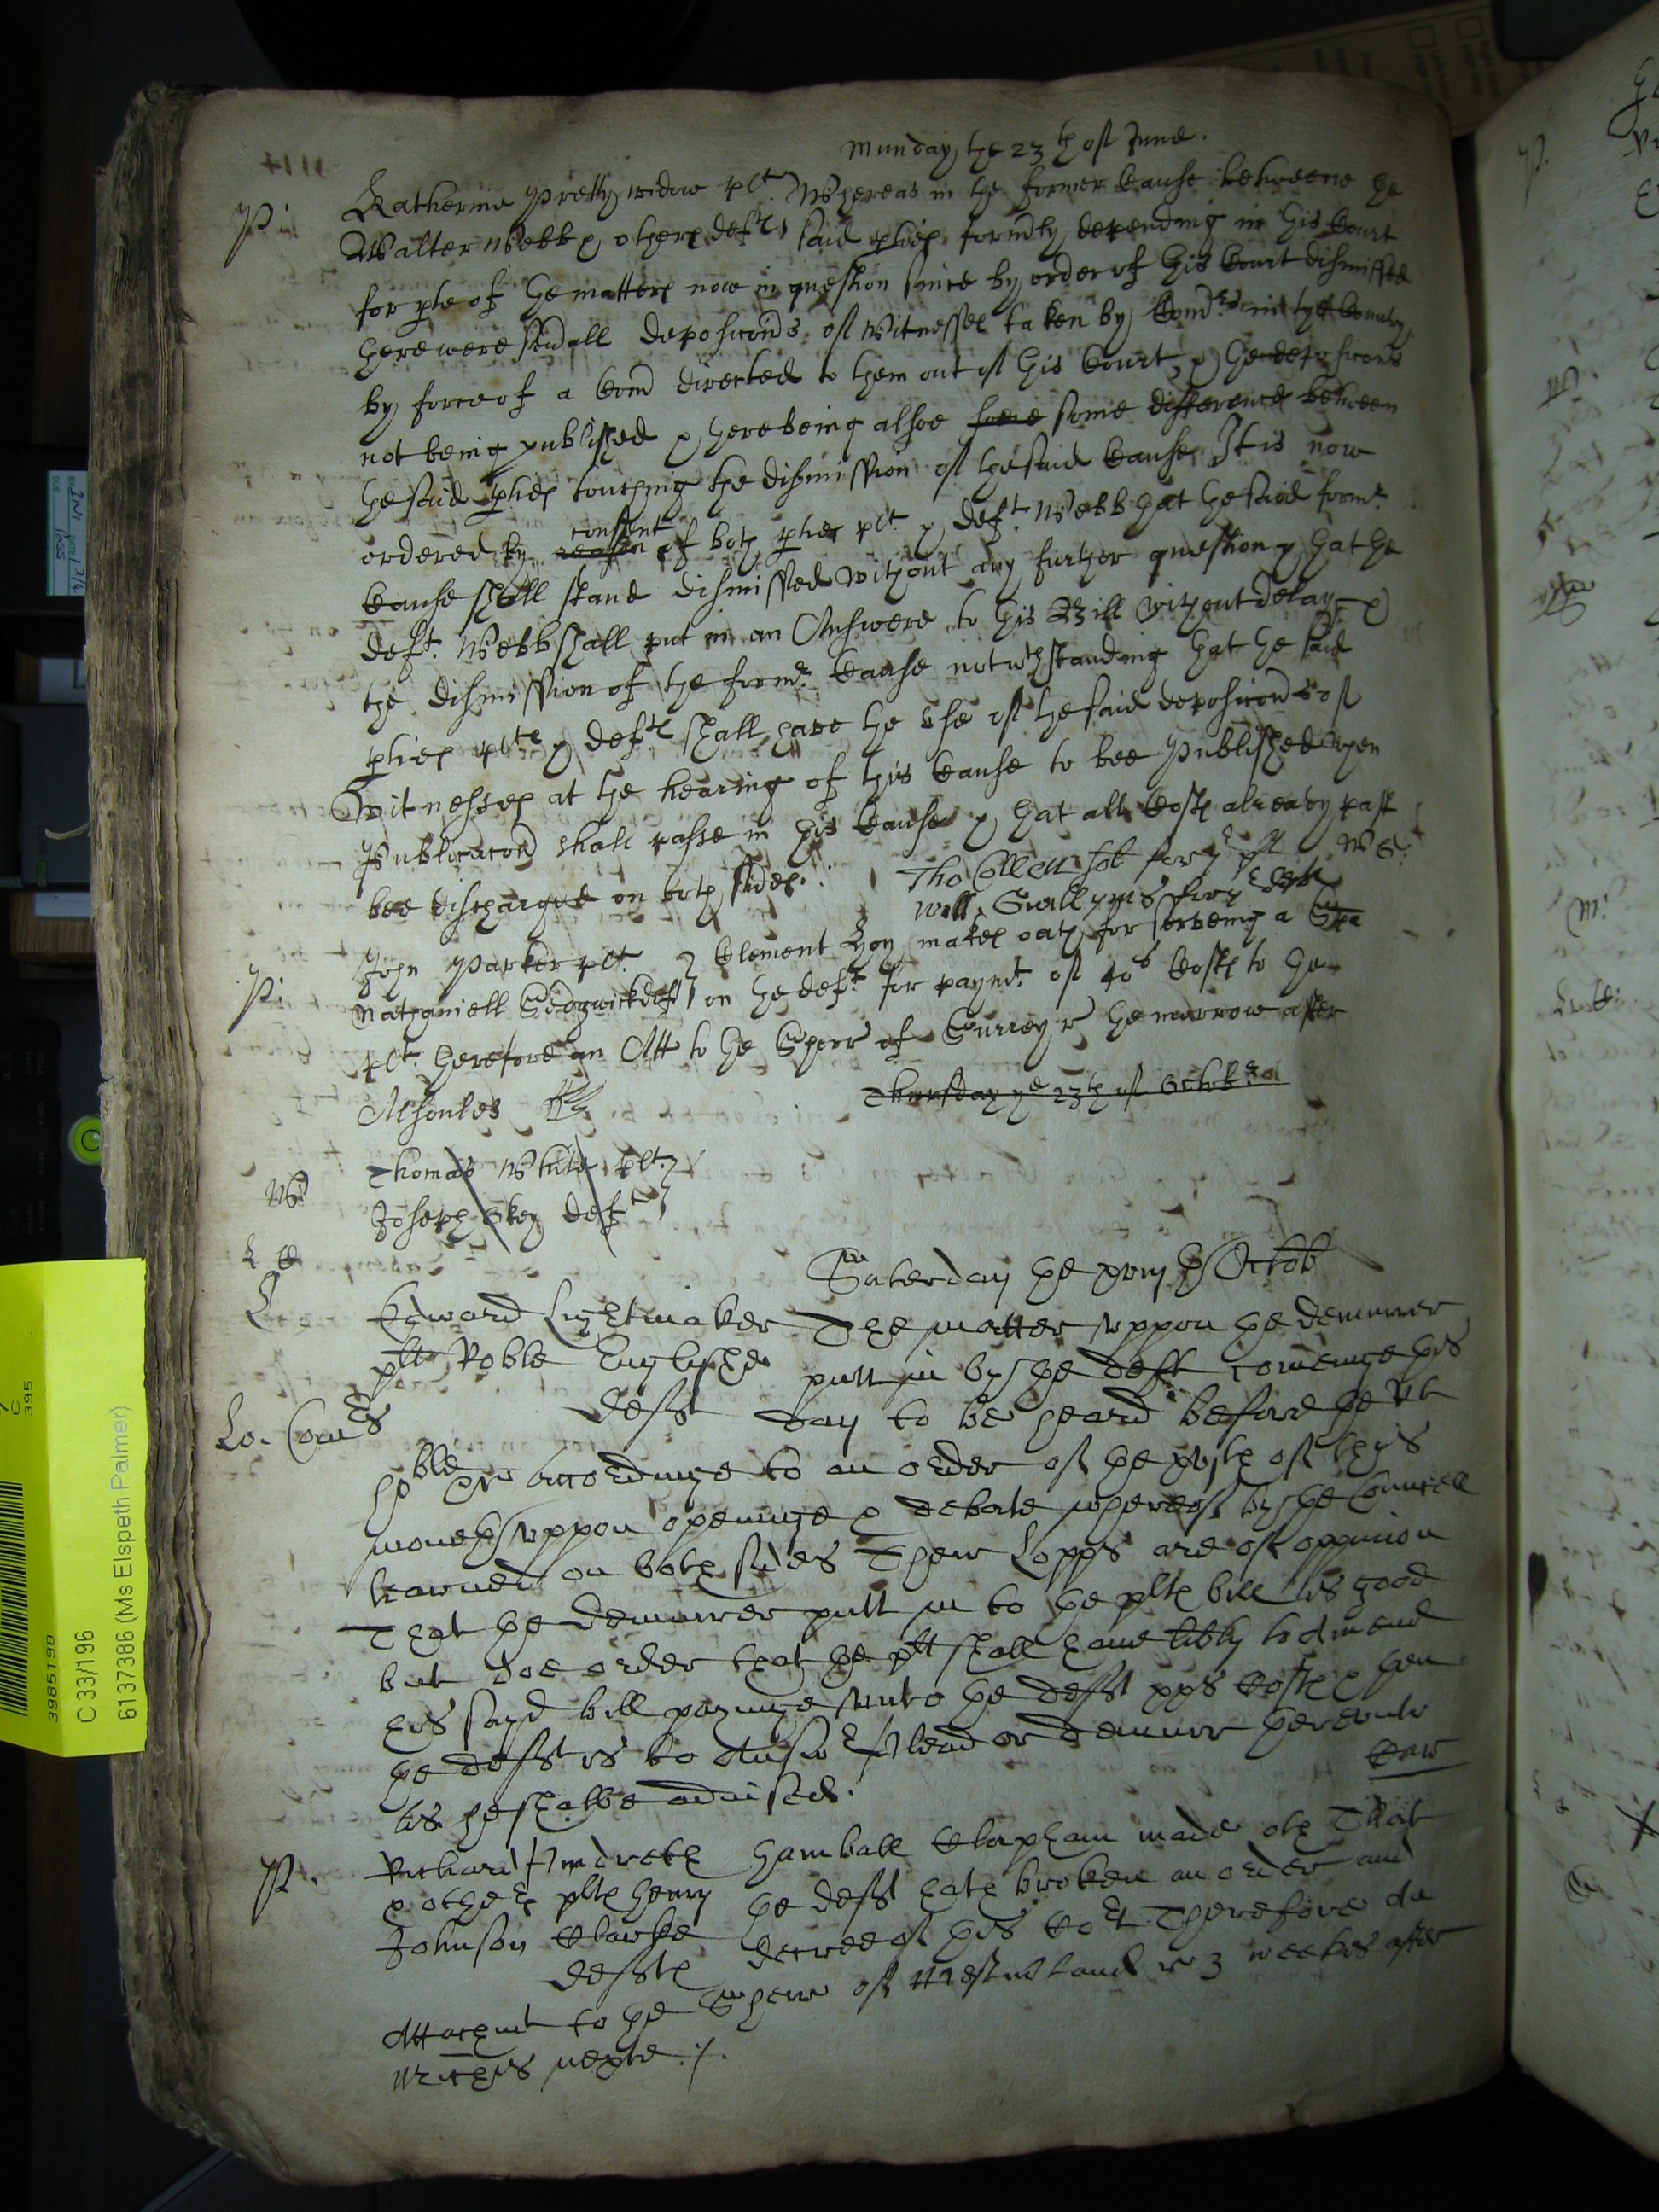 Munday the 23th of June.
P: Katherine Pretty widow plt Whereas in the former Cause betweene the
Walter Webb & others defts said pties formly depending in this Court
for pte of the matters now in question since by order of this Court dismissed
there were sevall deposicons of Witnesses taken by Comrs in the Country
by force of a Comn directed to them out of this Court, & the deposicons
not being published & there being alsoe some difference between
the said pties touching the dismission of the said Cause It is now
ordered by reason consent of both pties plt & deft Webb that the said formr
Cause shall stand dismissed without any further question & that the
deft. Webb shall put in an Answere to this Bill without delay &
the dismission of the formr Cause notwthstanding that the said
pties plts & defts shall have the use of the said deposicons of
Witnesses at the hearing of this Cause to bee Published when
Publicacon shall passe in this Cause & that all Costs already past
bee discharged on both sides.
Tho for ye plt
Will for ye deft
P: John Parker plt. Clement makes oath for serveing a Spa
Nathaniell Sedgwick deft on the deft. for paymt. of 40s Costs to the
plt. therefore an Att to the Shoor of Surrey r the morrow after
Alsoules
Thursday ye 23th of Octobr
W Thomas White plt.
Joseph Skey deft
Saterday the xviijth Octob
L Edward Lightmaker The matter uppon the demurrer
plt Roble Englyshe putt in by the deft comeinge this
Lo. Comrs deft day to be heard before the Rt
hoble accordinge to an order of the xvjth of this
moneth uppon openinge & debate whereof by the Councell
learned on both sides Their Lopps are of oppinion
That the demurrer putt in to the plts bill is good
but doe order that the plt shall have libty to Amend
his sayd bill payinge unto the deft xxs Costs & then
the deft is to Answr Plead or demurr thereunto
as he shalbe advised.
P. Richard made oth That
& others plts Henry the deft hath broken an order and
Johnson Clarke decree of this Cort Therefore An
defts
Attachmt to the Sherr of Westmland r 3 weekes after
Michis nexte ./.
3985190
C 33/196
61137386 (Ms Elspeth Palmer)
C
395